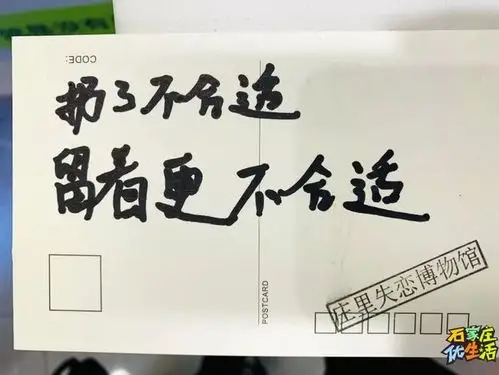 CODE:
扔了不合适
留着更不合适
POSTCARD
庄里失恋博物馆
石家庄
优生活